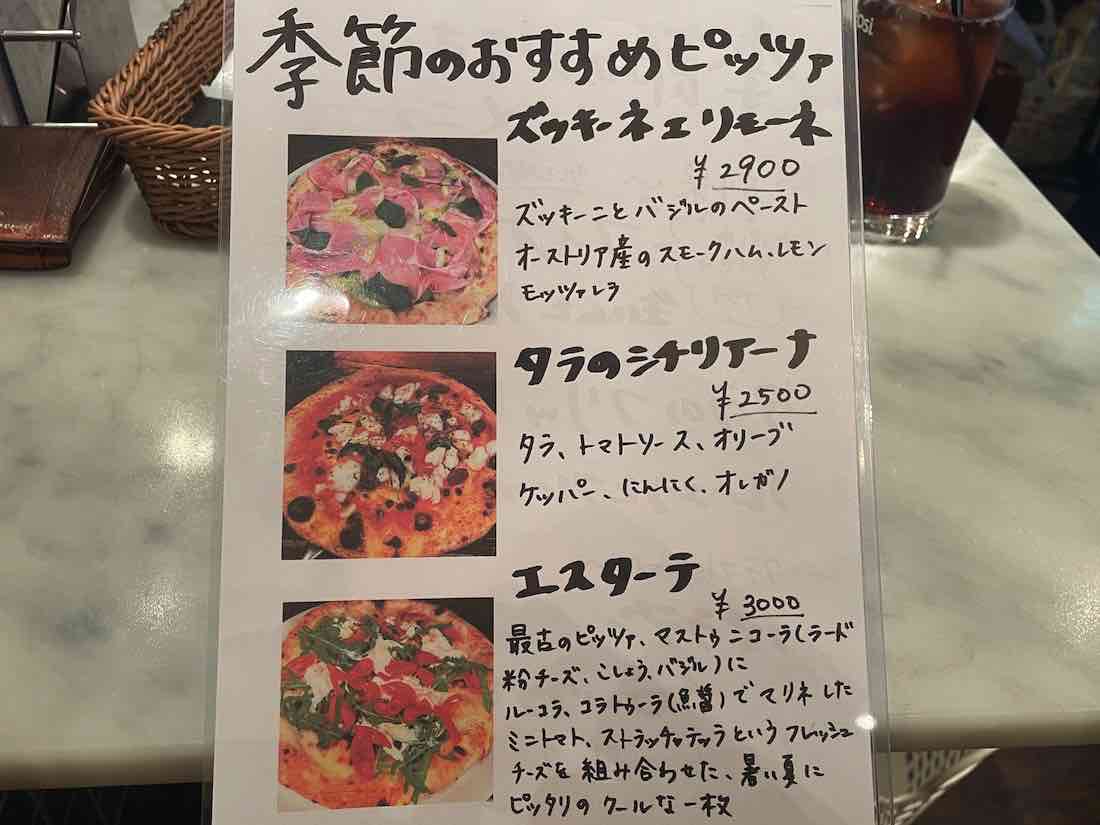 季節のおすすめピッツァ
ズッキーネエリモーネ
¥2900
ズッキーニとバジルのペースト
オーストリア産のスモークハム、レモン
モッツァレラ
タラのシチリアーナ
¥2500
タラ、トマトソース、オリーブ
ケッパー、にんにく、オレガノ
エスターテ
¥3000
最古のピッツァ、マストゥニコーラ(ラード
粉チーズ、こしょう、バジル)に
ルーコラ、コラトゥーラ(魚醤)でマリネした
ミニトマト、ストラッチャテッラというフレッシュ
チーズを組み合わせた、暑い夏に
ピッタリのクールな一枚